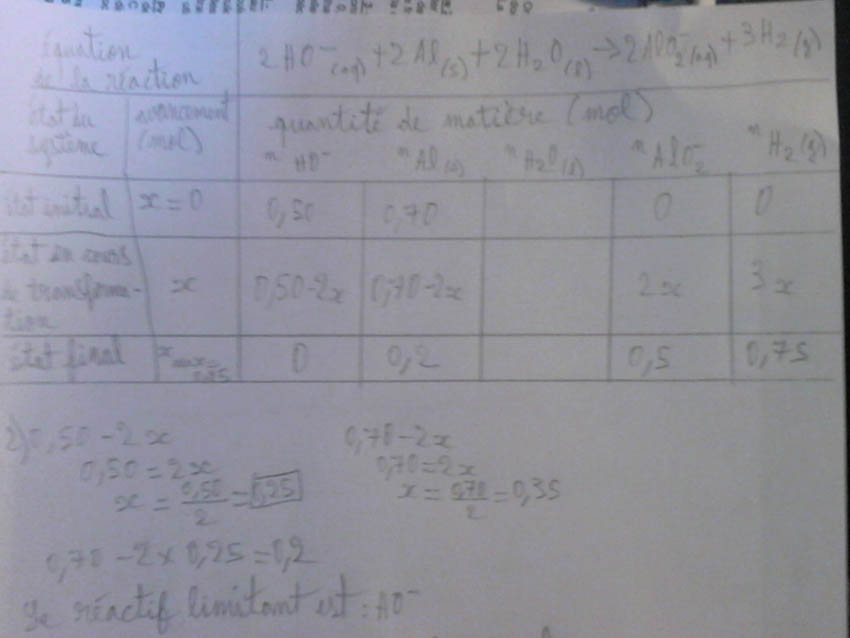 Équation de la réaction
2HO⁻(aq) + 2Al(s) + 2H₂O(l) → 2AlO₂⁻(aq) + 3H₂(g)
état du système
avancement (mol)
quantité de matière (mol)
n HO⁻ n Al(s) n H₂O(l) n AlO₂⁻ n H₂(g)
état initial x = 0 0,50 0,70 0 0
état en cours de transforma-tion x 0,50-2x 0,70-2x 2x 3x
état final x max = 0,25 0 0,2 0,5 0,75
2) 0,50 - 2x 0,70 - 2x
0,50 = 2x 0,70 = 2x
x = 0,50/2 = 0,25 x = 0,70/2 = 0,35
0,70 - 2 x 0,25 = 0,2
Le réactif limitant est : HO⁻